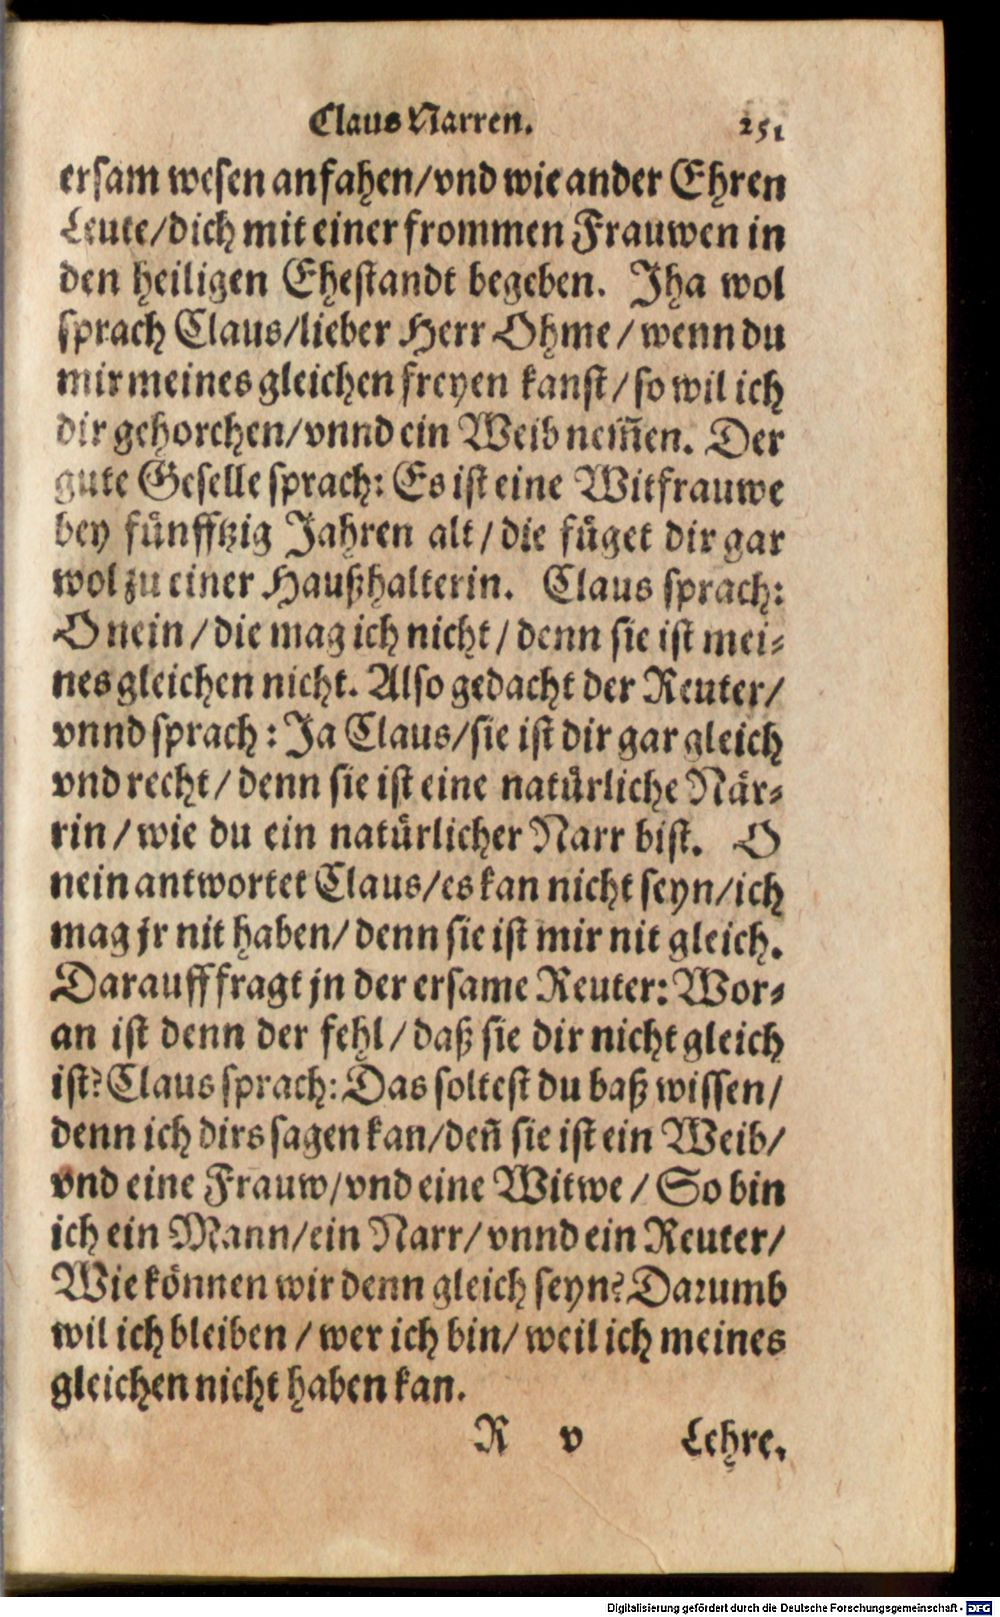 Claus Narren. 251
ersam wesen anfahen/vnd wie ander Ehren
Leute/dich mit einer frommen Frauwen in
den heiligen Ehestandt begeben. Jha wol
sprach Claus/lieber Herr Ohme/wenn du
mir meines gleichen freyen kanst/so wil ich
dir gehorchen/vnnd ein Weib nem̃en. Der
gute Geselle sprach: Es ist eine Witfrauwe
bey fuͤnfftzig Jahren alt/die fuͤget dir gar
wol zu einer Haußhalterin. Claus sprach:
O nein/die mag ich nicht/denn sie ist mei-
nes gleichen nicht. Also gedacht der Reuter/
vnnd sprach: Ja Claus/sie ist dir gar gleich
vnd recht/denn sie ist eine natuͤrliche Naͤr-
rin/wie du ein natuͤrlicher Narr bist. O
nein antwortet Claus/es kan nicht seyn/ich
mag jr nit haben/denn sie ist mir nit gleich.
Darauff fragt jn der ersame Reuter: Wor-
an ist denn der fehl/daß sie dir nicht gleich
ist? Claus sprach: Das soltest du baß wissen/
denn ich dirs sagen kan/deñ sie ist ein Weib/
vnd eine Frauw/vnd eine Witwe/So bin
ich ein Mann/ein Narr/vnnd ein Reuter/
Wie koͤnnen wir denn gleich seyn? Darumb
wil ich bleiben/wer ich bin/weil ich meines
gleichen nicht haben kan.
R v Lehre.
Digitalisierung gefördert durch die Deutsche Forschungsgemeinschaft - DFG